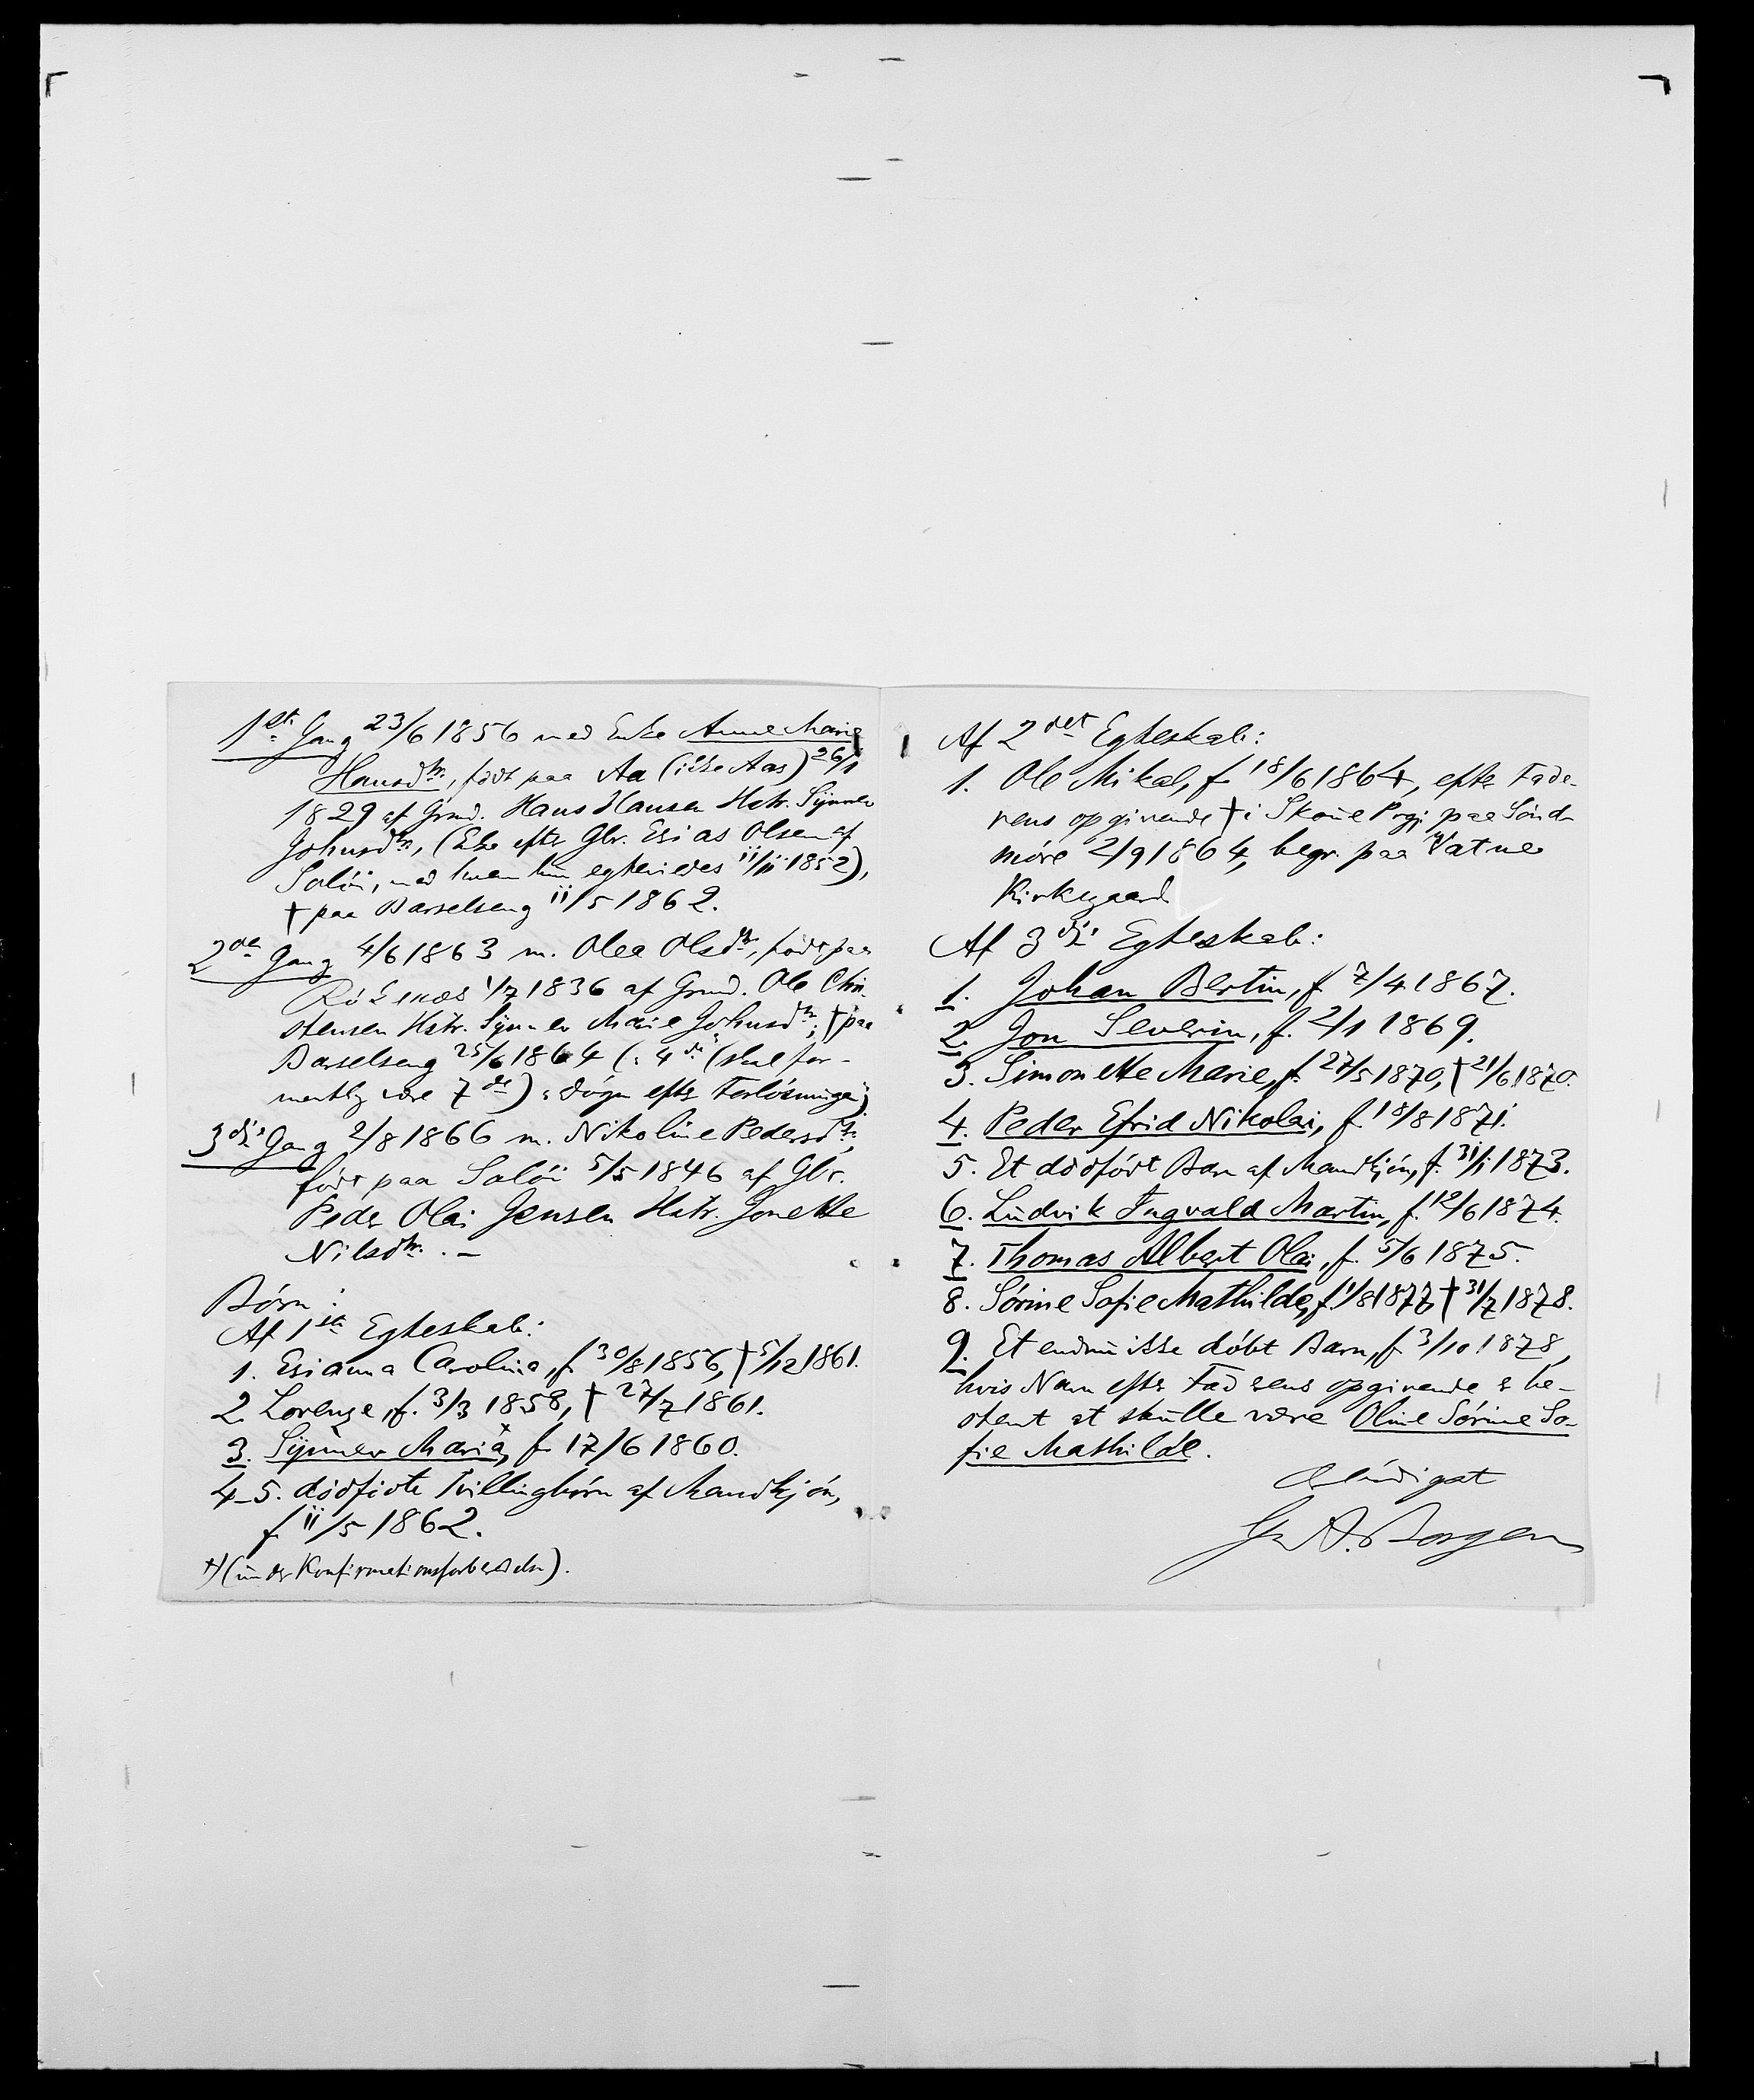 1ste Gang 23/6 1856 med Enke Anne Marie
Hansdtr., födt paa Aa (ikke Aas) 26/1
1829 af Grmd. Hans Hansen Hstr. Synnev
Johnsdtr, (Enke efter Gbr. Esias Olsen af
Salöi, med hvem hun egteviedes 11/11 1852),
† paa Barselseng 11/5 1862.
2den Gang 4/6 1863 m. Olea Olsdtr., födt paa
1/7 1836 af Grmd. Ole Chri-
stensen Hstr. Synnev Marie Johnsdtr; † paa
Barselseng 25/6 1864 (: 4de (skal for-
mentlig være 7de) : Dögn efter Forlösningen)
3die Gang 2/8 1866 m. Nikoline Pedersdtr.
födt paa Salöi 5/5 1846 af Gbr.
Peder Olai Jensen Hstr. Jonette
Nilsdtr. . –
Börn :
Af 1ste Egteskab:
1. Esianna Carolina, f. 30/8 1856, † 5/12 1861.
2. Lorense, f. 3/3 1858, † 27/7 1861.
3. Synnev Maria, x f. 17/6 1860.
4-5. dödfödte Tvillingbörn af Mandkjön,
f. 11/5 1862.
x) (under Konfirmationsforberedelse).
Af 2det Egteskab:
1. Ole Mikal, f. 18/6 1864, efter Fade-
rens opgivende † i Skoue Prgj. paa Sönd-
möre 2/9 1864, begr. paa Vatne
Kirkegaard
Af 3die Egteskab:
1. Johan Bertin, f. 7/4 1867.
2. Jon Severin, f. 2/1 1869.
3. Simonette Marie, f. 27/5 1870, † 21/6 1870.
4. Peder Efrid Nikolai, f. 18/8 1871.
5. Et dödfödt Barn af Mandkjön, f. 31/1 1873.
6. Ludvik Ingvald Martin, f. 12/6 1874.
7. Thomas Albert Olai, f. 5/6 1875.
8. Sörine Sofie Mathilde, f. 1/8 1877, † 31/7 1878.
9. Et endnu ikke döbt Barn, f. 3/10 1878,
hvis Navn efter Faderens opgivende er be-
stemt at skulle være Oline Sörine So-
fie Mathilde.
Ærbödigst
A. Borgen